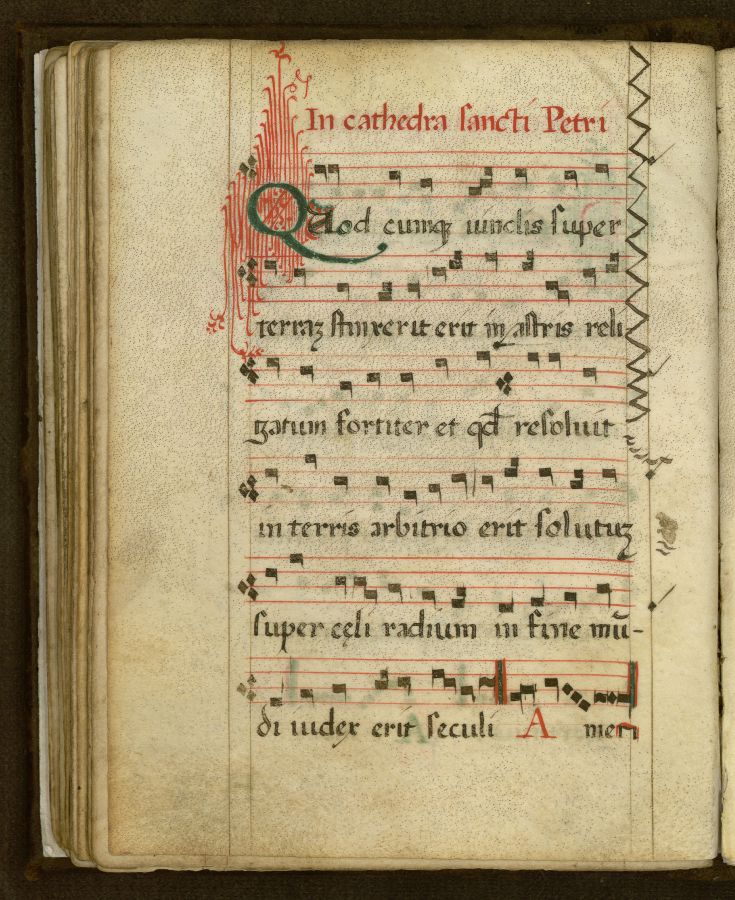 In cathedra sancti Petri
Quod cumqꝫ uinclis super
terraꝫ strinxerit erit in astris reli
gatum fortiter et qd̄ resoluit
in terris arbitrio erit solutuꝫ
super cęli radium in fine mū-
di iudex erit seculi Amen